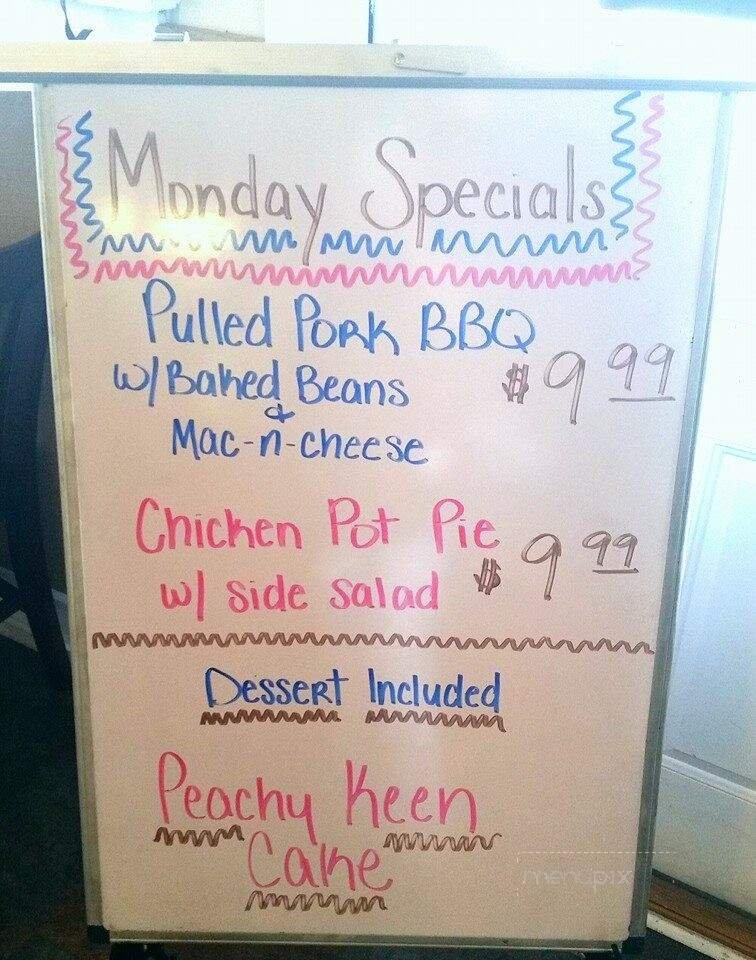 Monday Specials
Pulled Pork BBQ
w/ Baked Beans
&
Mac-n-cheese
$9.99
Chicken Pot Pie
w/ side salad
$9.99
Dessert Included
Peachy Keen
Cake
menupix